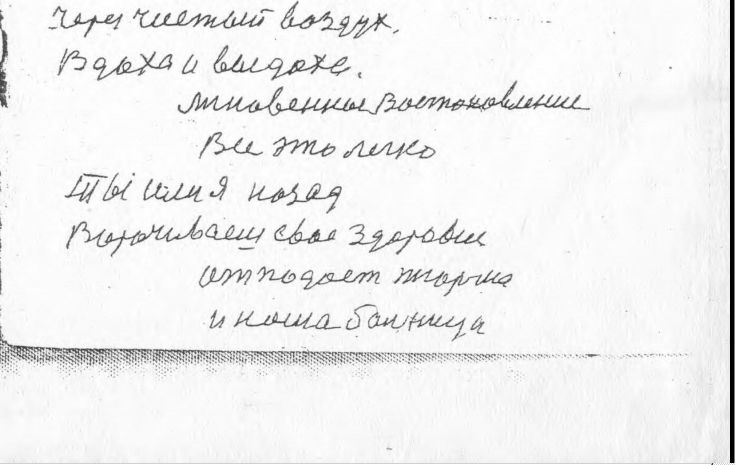 через чистый воздух.
Вдоха и выдоха.
мгновенное Востоновление
Все это легко
Ты или я назад
Ворочиваеш свое здоровие
отподает тюрма
и наша болница